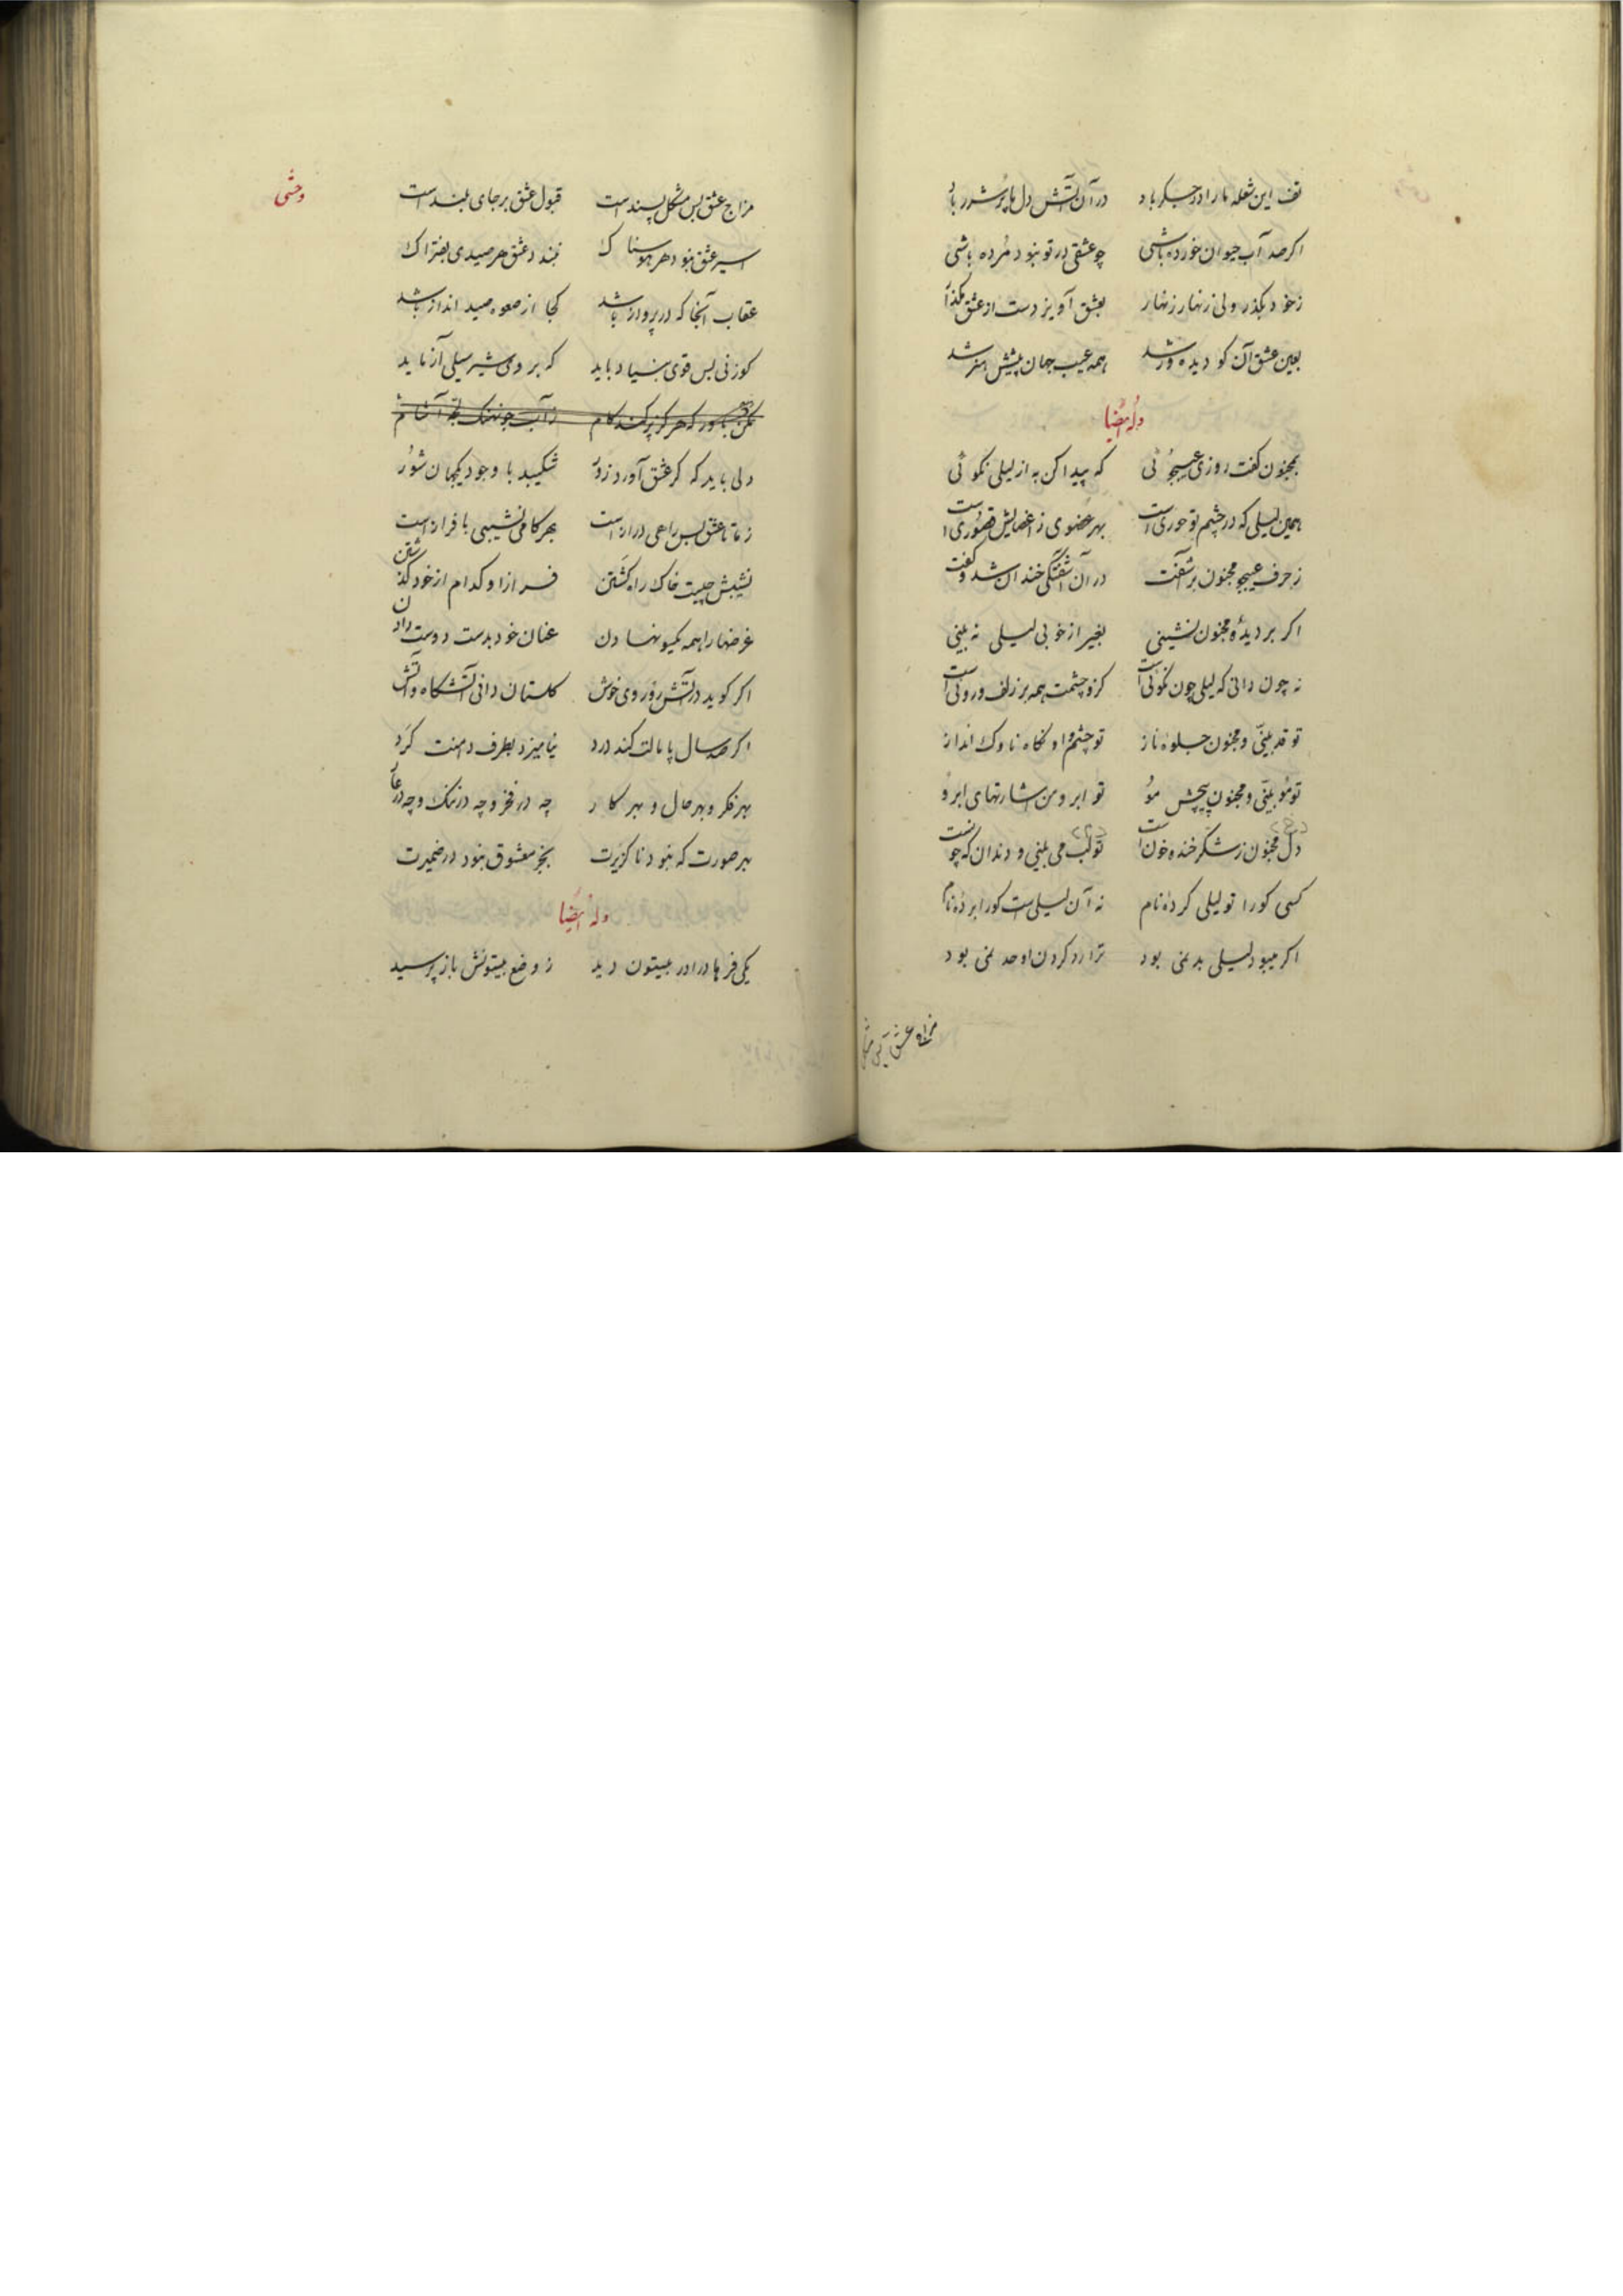 تف این شعله ما را در جگر باد در آن آتش دل ما پر شرر باد
اکر صد آب حیوان خورده باشی چو عشقی در تو نبود مرده باشی
زخود بکذر ولی زنهار زنهار بعشق آویز دست از عشق مکذار
بعین عشق آن کو دیده ور شد همه عیب جهان پیشش هنر شد
وله ایضا
بمجنون کفت روزی عیبجوئی که پیدا کن به از لیلی نکوئی
همین لیلی که در چشم تو حوری است بهر عضوی ز اعضایش قصوری است
زحرف عیبجو مجنون برآشفت در آن آشفتگی خندان شد و کفت
اکر بر دیدهٔ مجنون نشینی بغیر از خوبی لیلی نه بینی
نه چون دانی که لیلی چون نکوئی است کزو چشمت همه بر زلف و روئی است
تو قد بینی و مجنون جلوه ناز تو چشم و او نکاه ناوک انداز
تو مو بینی و مجنون پیچش مو تو ابرو من اشارتهای ابرو
دل مجنون ز شکر خنده خون است تو لب می بینی و دندان که چونست
کسی کو را تو لیلی کردهٔ نام نه آن لیلی است کو را بردهٔ نام
اکر میبود لیلی بد نمی بود ترا رد کردن او حد نمی بود
مزاج عشق بس مشکل
وحشی
مزاج عشق بس مشکل پسند است قبول عشق بر جای بلند است
اسیر عشق نبود هر هوسناک نبندد عشق هر صیدی بفتراک
عقاب آنجا که در پرواز باشد کجا از صعوه صید انداز باشد
کوزنی بس قوی بنیاد باید که بر وی شیر سیلی آزماید
مکن باور که هرکز تر کند کام ز آب جو نهنک لجه آشام
دلی باید که کر عشق آورد زور شکیبد با وجود یکجهان شور
ز ما تا عشق بس راهی دراز است بهر کامی نشیبی با فراز است
نشیبش چیست خاک راه کشتن فراز او کدام از خود کذشتن
غرضها را همه یکسو نهادن عنان خود بدست دوست دادن
اکر کوید در آتش رو روی خوش کلستان دانی آتشکاه و آتش
اکر صد سال پامالت کند درد نیامیزد بطرف دامنت کرد
بهر فکر و بهر حال و بهر کار چه در فخر و چه در ننک و چه در عار
بهر صورت که نبود ناکزیرت بجز معشوق نبود در ضمیرت
وله ایضا
یکی فرهاد را در بیستون دید ز وضع بیستونش باز پرسید